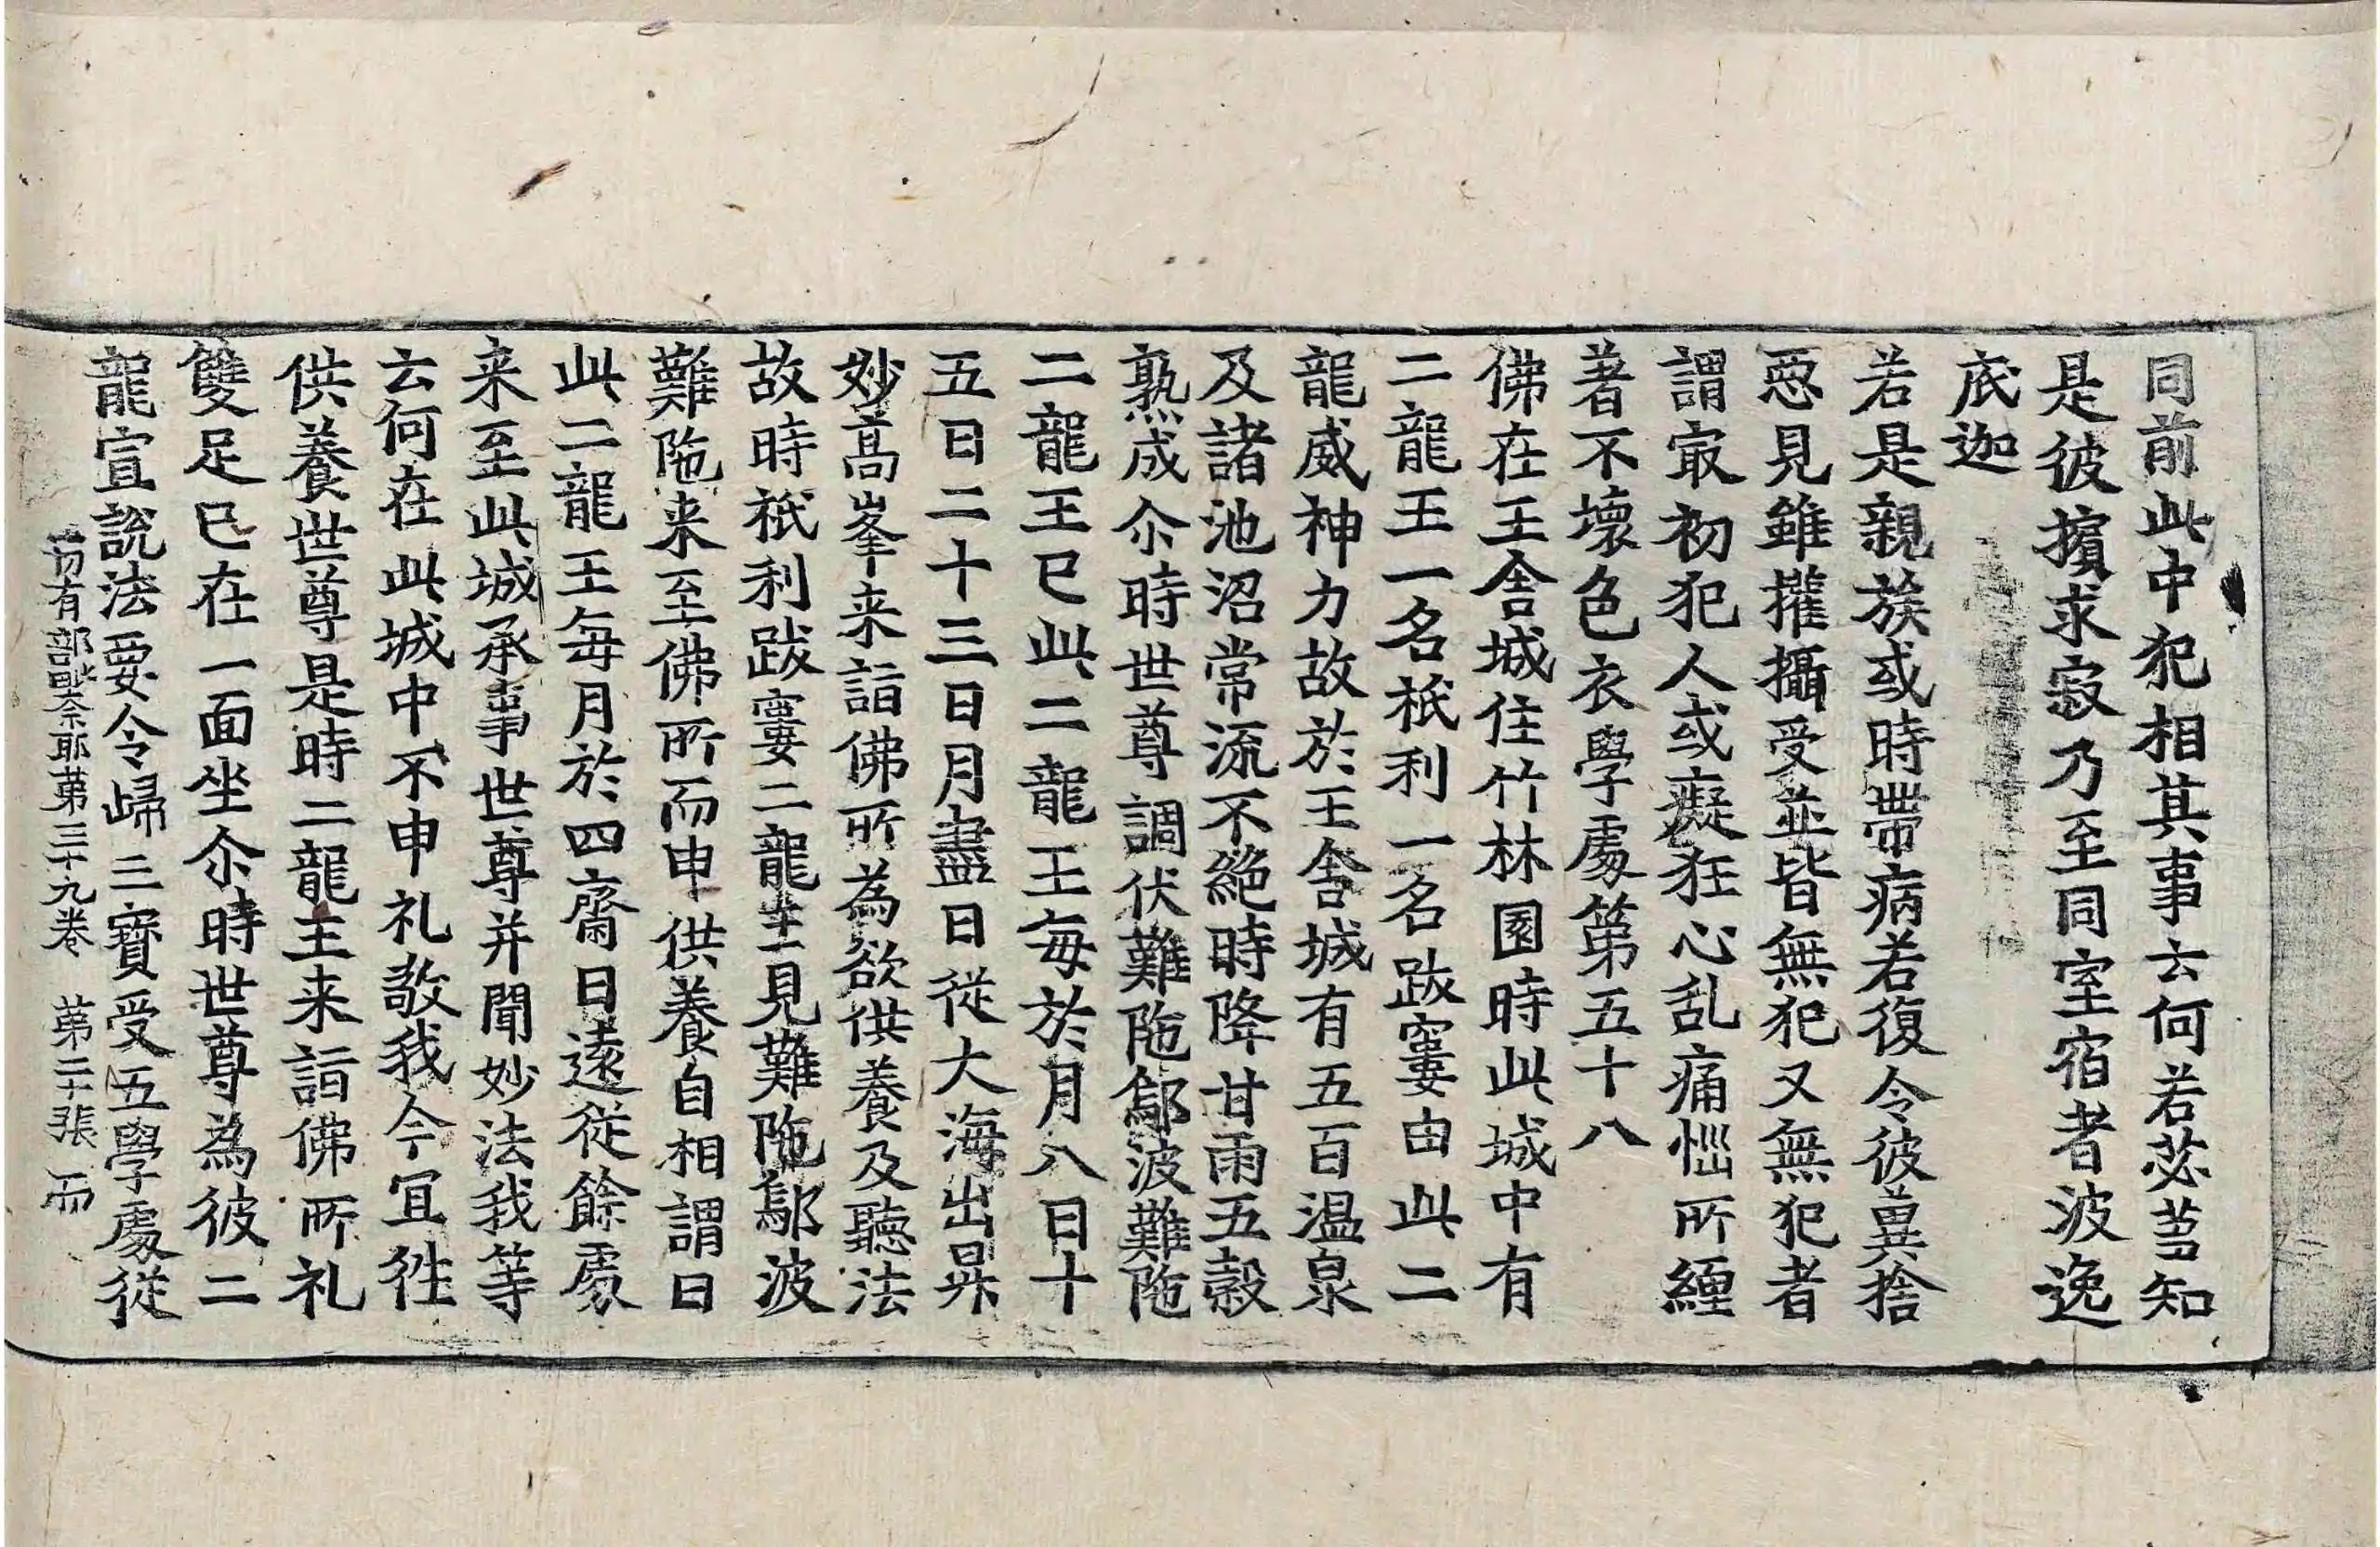 同前此中犯相其事云何若苾芻知
是彼擯求寂乃至同室宿者波逸
底迦
若是親族或時帶病若復令彼異捨
惡見雖攉攝受並皆無犯又無犯者
謂㝡初犯人或癡狂心乱痛惱所纏
著不壞色衣學處第五十八
佛在王舍城住竹林園時此城中有
二龍王一名祇利一名跋窶由此二
龍威神力故於王舍城有五百温泉
及諸池沼常流不絶時降甘雨五穀
熟成尒時世尊調伏難陁鄔波難陁
二龍王已此二龍王每於月八日十
五日二十三日月盡日從大海出昇
妙高峯来詣佛所為欲供養及聽法
故時祇利跋窶二龍王見難陁鄔波
難陁来至佛所而申供養自相謂曰
此二龍王每月於四齋日遠從餘處
来至此城承事世尊并聞妙法我等
云何在此城中不申礼敬我今宜往
供養世尊是時二龍王来詣佛所礼
雙足已在一面坐尒時世尊為彼二
龍宣說法要令歸三寶受五學處從
一切有部毗奈耶第三十九卷 第二十張 而